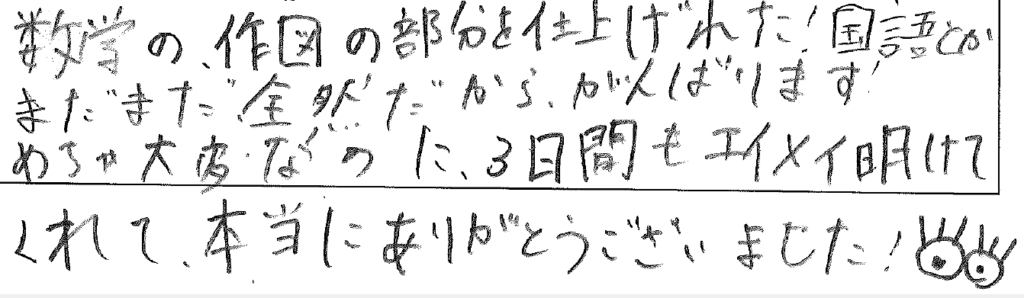 数学の、作図の部分を仕上げれた!国語とか
まだまだ全然だから、がんばります!
めちゃ大変なのに、3日間もエイメイ明けて
くれて、本当にありがとうございました!